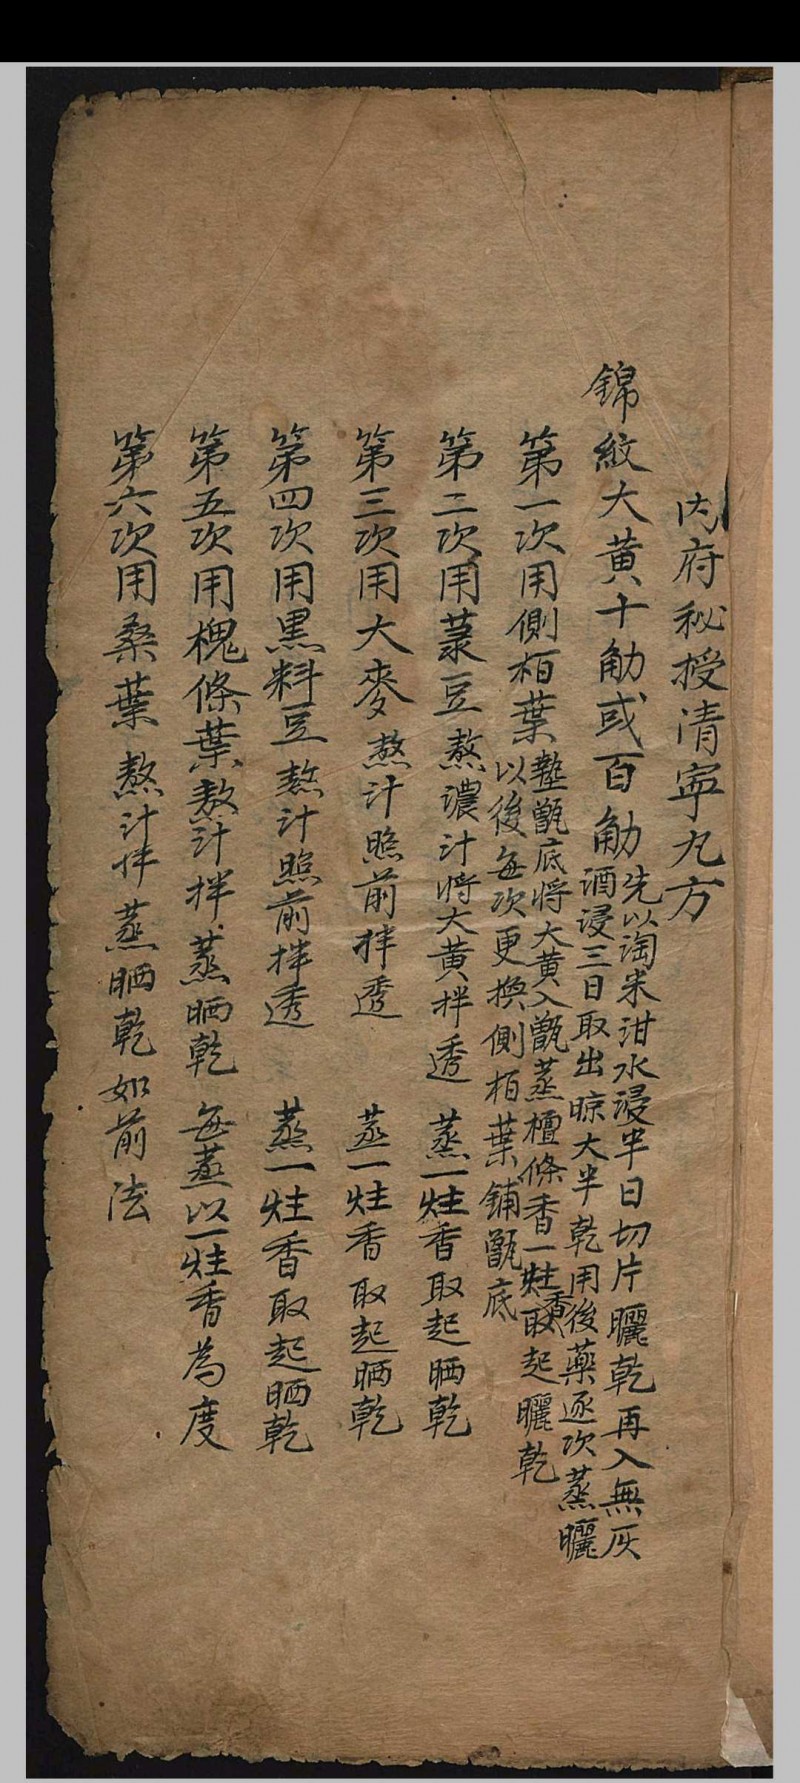 內府秘授清寧丸方
錦紋大黃十觔或百觔
先以淘米泔水浸半日切片曬乾再入無灰
酒浸三日取出晾大半乾用後藥逐次蒸曬
第一次用側栢葉
墊甑底將大黃入甑蒸檀條香一炷香取起曬乾
以後每次更換側栢葉鋪甑底
第二次用菉豆熬濃汁將大黃拌透 蒸一炷香取起晒乾
第三次用大麥熬汁照前拌透 蒸一炷香取起晒乾
第四次用黑料豆熬汁照前拌透 蒸一炷香取起晒乾
第五次用槐條葉熬汁拌蒸晒乾 每蒸以一炷香為度
第六次用桑葉熬汁拌蒸晒乾如前法